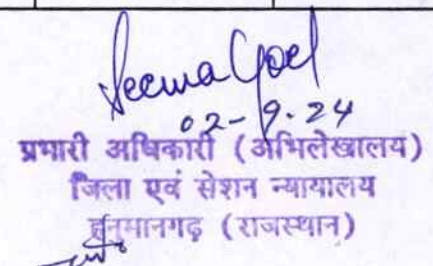 Seema Goel
02-9-24
प्रभारी अधिकारी (अभिलेखालय)
जिला एवं सेशन न्यायालय
हनुमानगढ़ (राजस्थान)